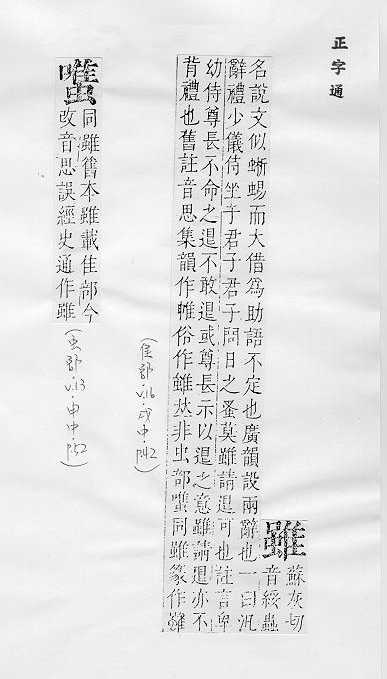 正字通
雖
蘇灰切
音綏蟲
名說文似蜥蜴而大借爲助語不定也廣韻設兩辭也一曰況
辭禮少儀侍坐于君子君子問日之蚤莫雖請退可也註言卑
幼侍尊長不命之退不敢退或尊長示以退之意雖請退亦不
背禮也舊註音思集韻作帷俗作雖𠀤非虫部𧈧同雖篆作雖
(隹部·v.16·戌中·p42)
𧈧
同雖舊本雖載隹部今
改音思誤經史通作雖
(虫部·v.13·申中·p52)